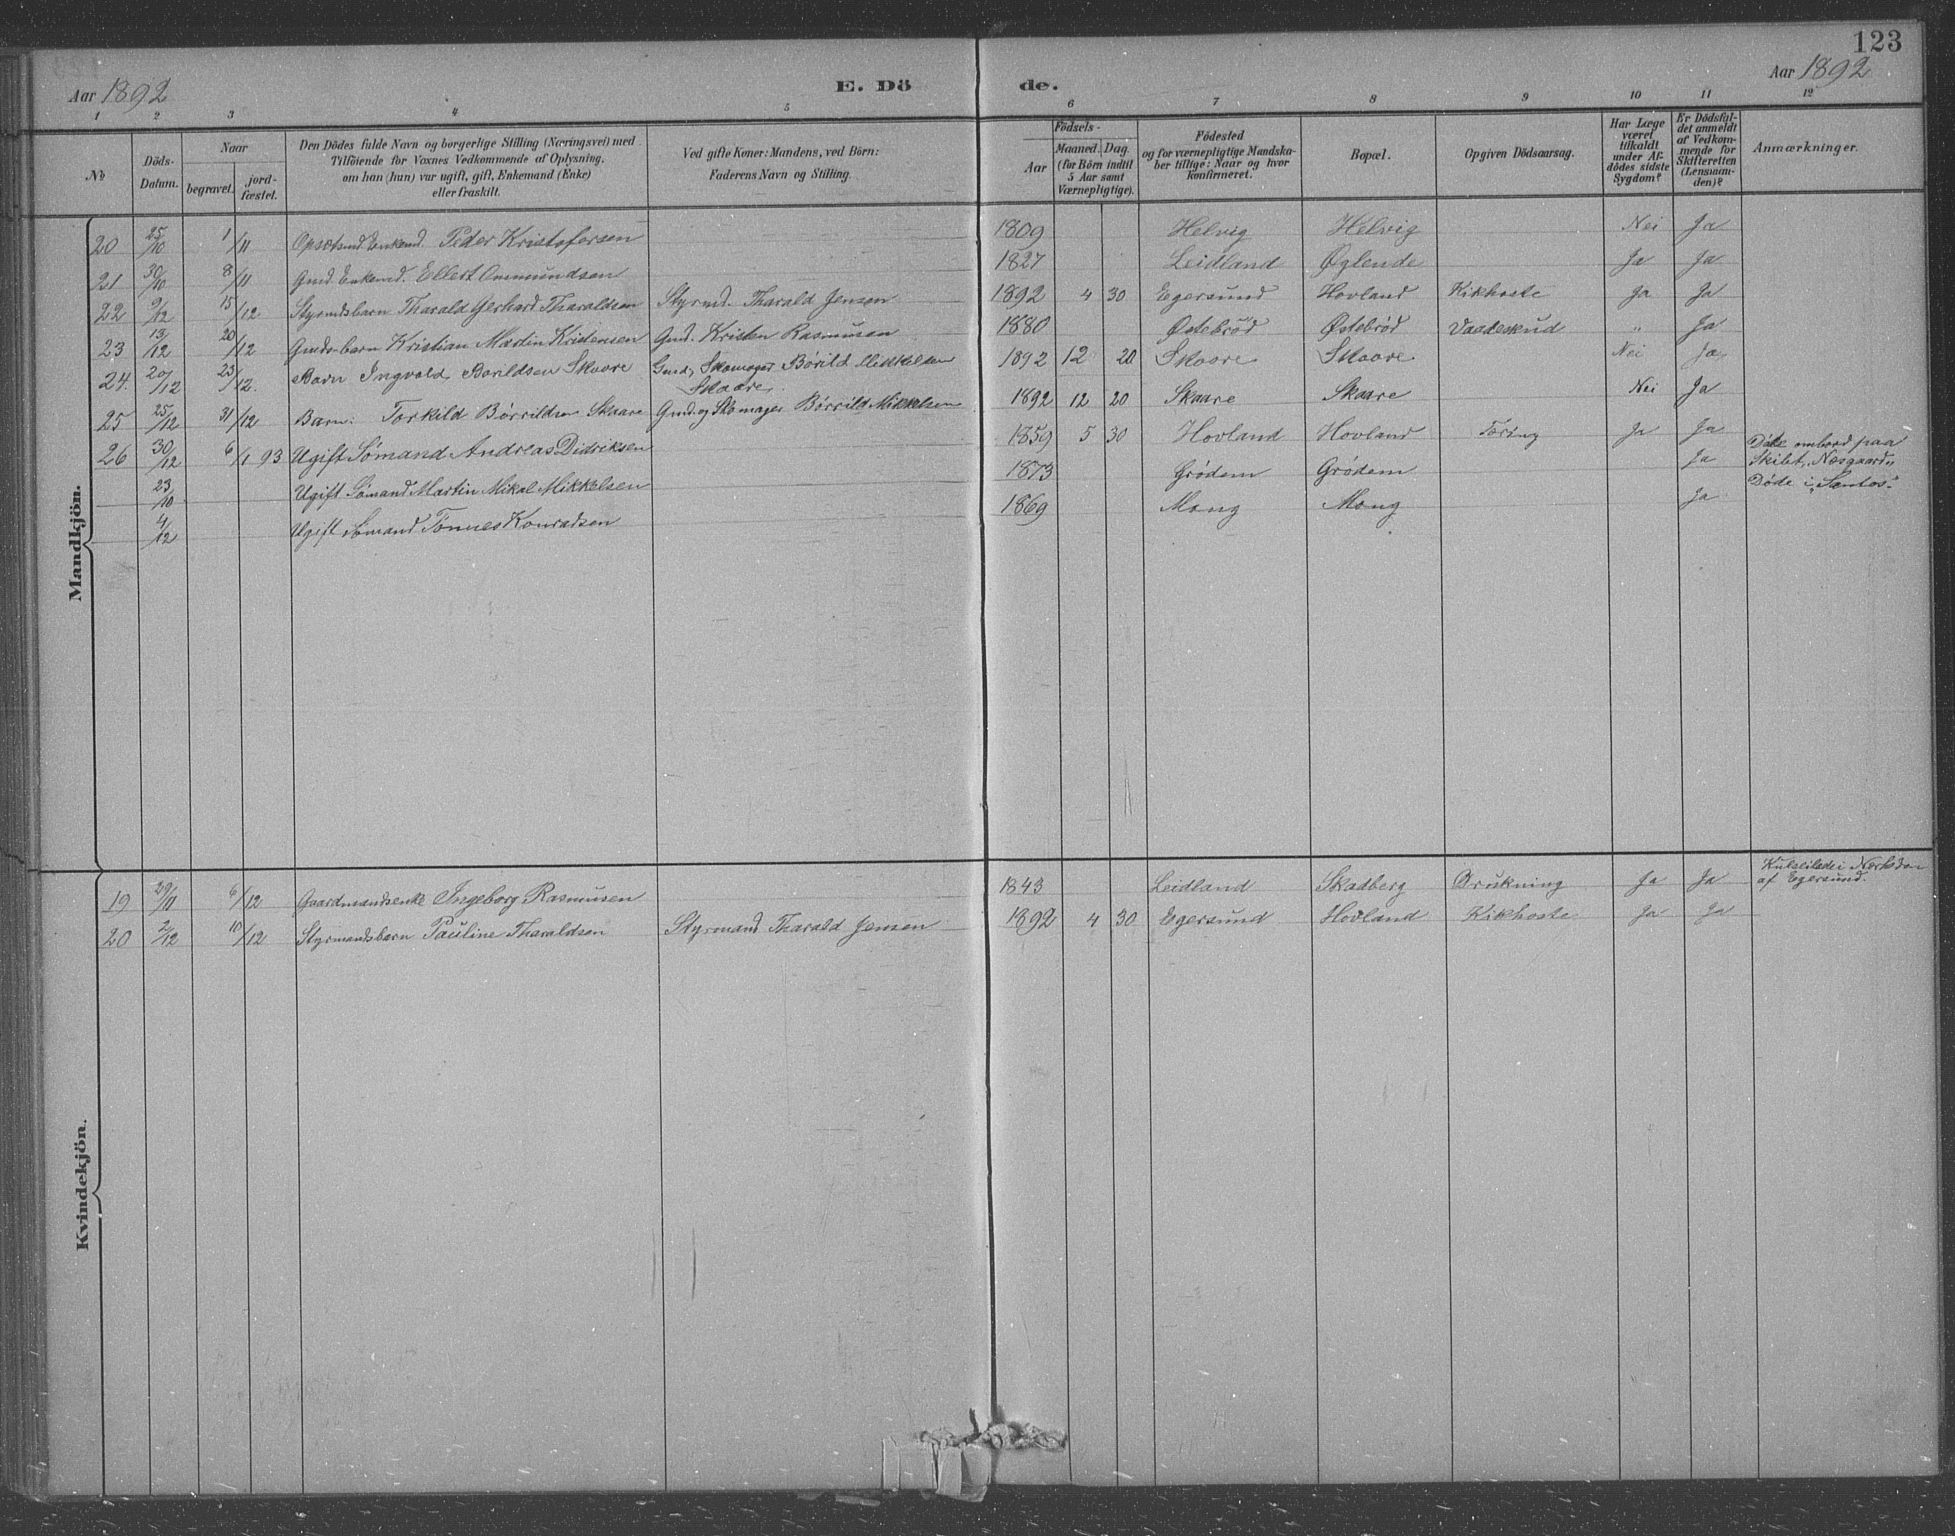 123
Aar 1892 E. Dö de. Aar 1892
1 2 3 4 5 6 7 8 9 10 11 12
No
Döds-Datum.
Naar
begravet. jord-fæstet.
Den Dödes fulde Navn og borgerlige Stilling (Næringsvei) med
Tilföiende for Voxnes Vedkommende af Oplysning.
om han (hun) var ugift, gift, Enkemand (Enke)
eller fraskilt.
Ved gifte Koner: Mandens, ved Börn:
Faderens Navn og Stilling.
Födsels-
Aar Maaned. Dag.
(for Börn indtil
5 Aar samt
Værnepligtige).
Födested
og for værnepligtige Mandska-
ber tillige: Naar og hvor
konfirmeret.
Bopæl.
Opgiven Dödsaarsag.
Har Læge
været
tilkaldt
under Af-
dödes sidste
Sygdom?
Er Dödsfal-
det anmeldt
af Vedkom-
mende for
Skifteretten
(Lensman-
den)?
Anmærkninger.
Mandkjön.
20 25/10 1/11 Enkemd. Peder Kristofersen 1809 Helvig Helvig Nei Ja
21 30/10 8/11 Gmd. Enkemd. Ellert Ommundsen 1827 Leidland Øglende Ja Ja
22 9/12 15/12 Styrmdsbarn Tharald Gerhard Tharaldsen Styrmd. Tharald Jensen 1892 4 30 Egersund Hovland Kikhoste Ja Ja
23 13/12 20/12 Gmdsbarn Kristian Martin Kristensen Gmd. Kristen Rasmusen 1880 Østebrød Østebrød Vaadeskud " Ja
24. 20/12 23/12. Barn Ingvald Borildsen Skaare Gmd, Skomager Børild Mikkelsen 1892 12 20 Skaare Skaare Nei Ja
Skaare.
25 25/12 31/12 Barn: Torkild Børrildsen Skaare Gmd og Skomager Børrild Mikkelsen 1892 12 20 Skaare Skaare Nei Ja
26 30/12 6/1 93 Ugift Sømand Andreas Didriksen 1859 5 30 Hovland Hovland Tæring Ja Ja
23/10 Ugift Sømand Martin Mikal Mikkelsen 1873 Grødem Grødem Ja Døde ombord paa
Skibet "Næsgaard"
4/12 Ugift Sømand Tønnes Konradsen 1869 Mong Mong Ja Døde i "Santos".
Kvindekjön.
19 29/11 6/12 Gaardmandsenke Ingeborg Rasmusen 1843 Leidland Skadberg Drukning Ja Ja
af Egersund.
20 2/12 10/12 Styrmandsbarn Pauline Tharaldsen Styrmand Tharald Jensen 1892 4 30 Egersund Hovland Kikhoste Ja Ja